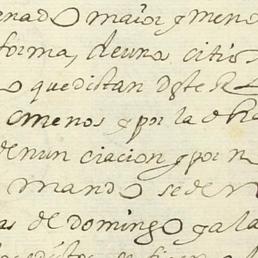 enado maior y meno
forma, de uno, citio
o que distan dste R
o menos y por la obra
denunciacion y por n
mando se den
as de domingo y a la